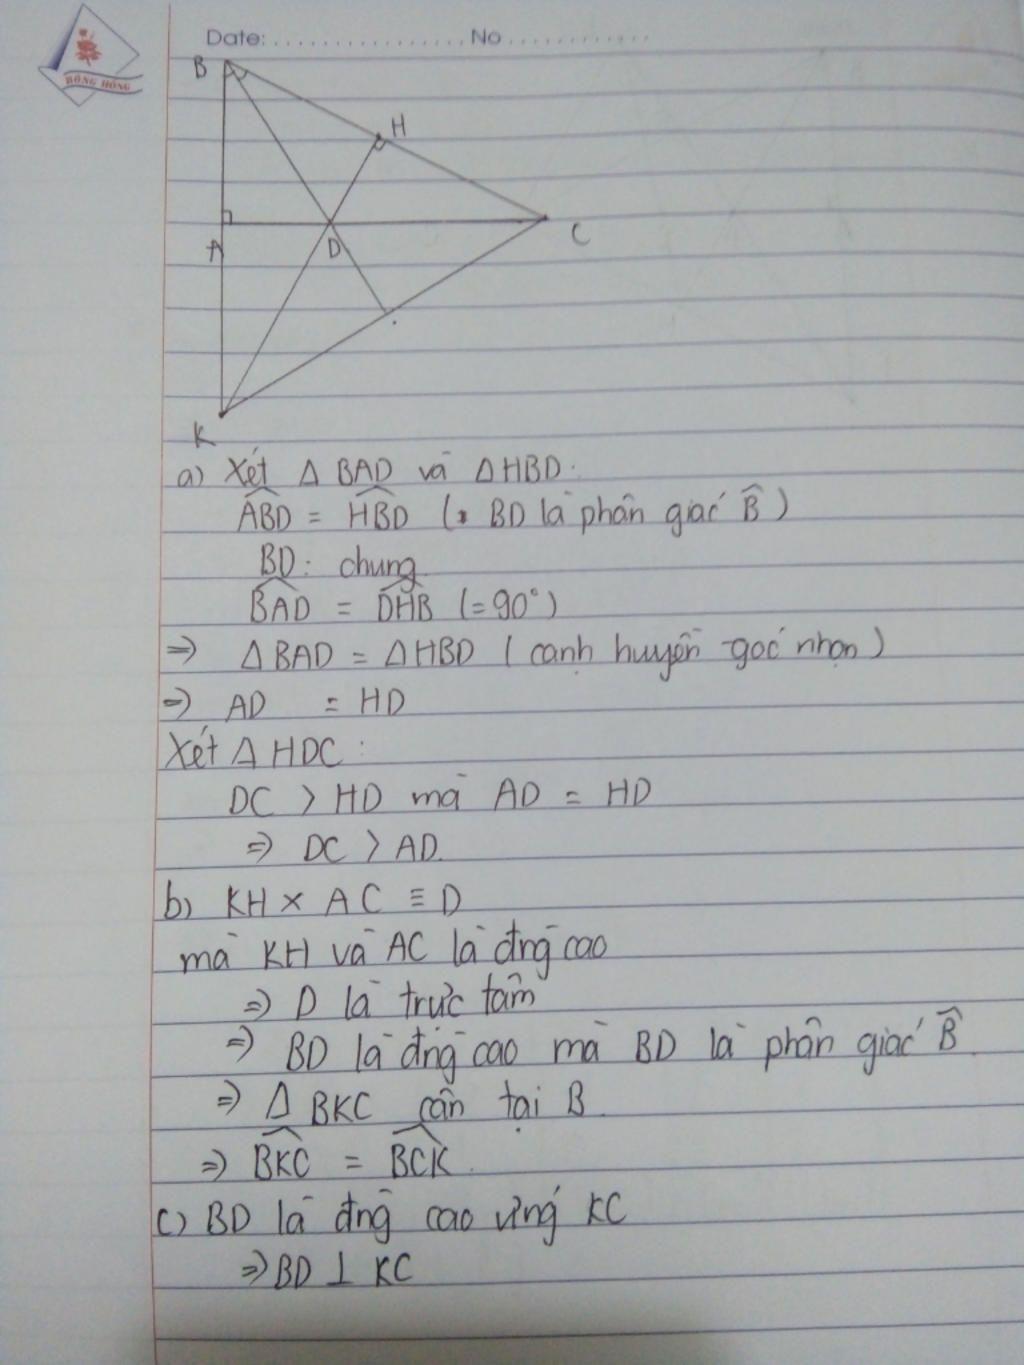 BÔNG HỒNG
Date:................No.............
B
H
A
D
C
K
a) Xét Δ BAD và Δ HBD:
ABD̂ = HBD̂ ( BD là phân giác B̂ )
BD: chung
BAD̂ = DHB̂ (=90°)
=> Δ BAD = Δ HBD ( cạnh huyền -góc nhọn )
=> AD = HD
Xét Δ HDC :
DC > HD mà AD = HD
=> DC > AD.
b) KH × AC ≡ D
mà KH và AC là đng̀ cao
=> D là trực tâm
=> BD là đng̀ cao mà BD là phân giác B̂.
=> Δ BKC cân tại B.
=> BKĈ = BCK̂.
c) BD là đng̀ cao ứng KC
=> BD ⊥ KC